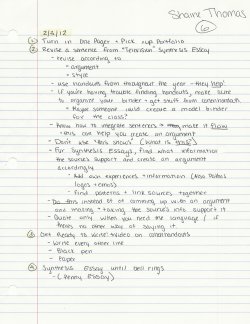 Shane Thomas
6
2/6/12
① Turn in One Pager + Pick up Portfolio
② Revise a sentence from "Television" Synthesis Essay
- revise according to
- argument
- style
- use handouts from throughout the year - they help!
- If you're having trouble finding handouts, make sure
to organize your binder + get stuff from
- Maybe someone could create a model binder
for the class?
- Know how to integrate sentences → make it flow
- this can help you create an argument
- Don't use "this shows" (What is this?)
- For Synthesis Essays, find what information
the sources support and create an argument
accordingly
- Add own experiences + information (Also Pathos
logos + ethos)
- Find patterns + link sources together
- Do this instead of coming up with an argument
and making + taking the sources into support it
- Quote only when you need the language / if
there's no other way of saying it.
③ Get Ready to Write! + Video on
- Write every other line
- Black pen
- Paper
④ Synthesis Essay until bell rings
- (Penny Essay)